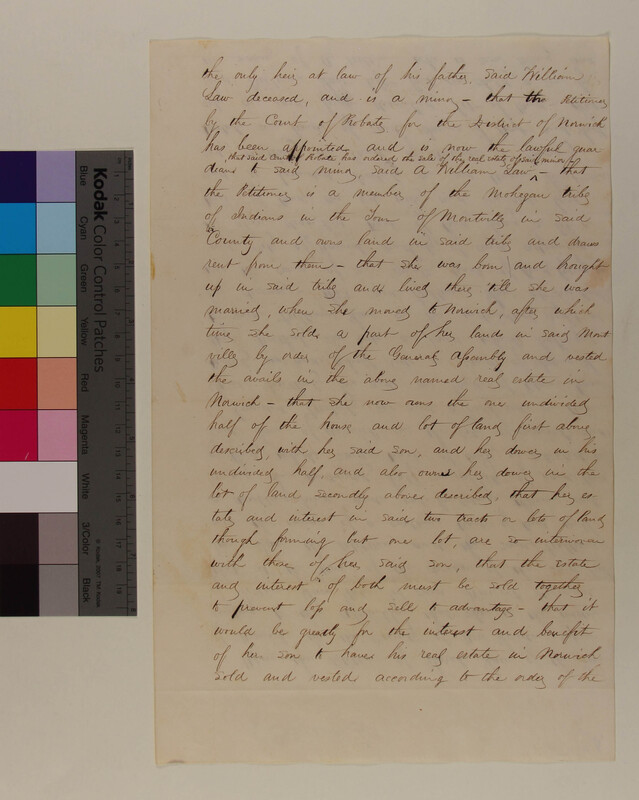 the only heir at law of his father, said William
Law deceased, and is a minor - that the Petitioner
by the Court of Probate, for the District of Norwich
has been appointed and is now the lawful guar
that said Court of Probate has ordered the sale of the real estate of said minor
dian to said minor, said A William Law ^ - that
the Petitioner is a member of the Mohegan tribe
of Indians in the Town of Montville in said
County and owns land in said tribe and draws
rent from them - that she was born and brought
up in said tribe and lived there 'till she was
married, when she moved to Norwich, after which
time she sold a part of her lands in said Mont
ville by order of the General Assembly and vested
the avails in the above named real estate in
Norwich - that she now owns the one undivided
half of the house and lot of land first above
described, with her said son, and her dower in his
undivided half, and also owns her dower in the
lot of land secondly above described, that her es
tate and interest in said two tracts or lots of land
though forming but one lot, are so interwoven
with those of her said son, that the estate
and interest of both must be sold together
to prevent loss and sell to advantage - that it
would be greatly for the interest and benefit
of her son to have his real estate in Norwich
sold and vested according to the order of the
Kodak Color Control Patches
Blue
Cyan
Green
Yellow
Red
Magenta
White
3/Color
Black